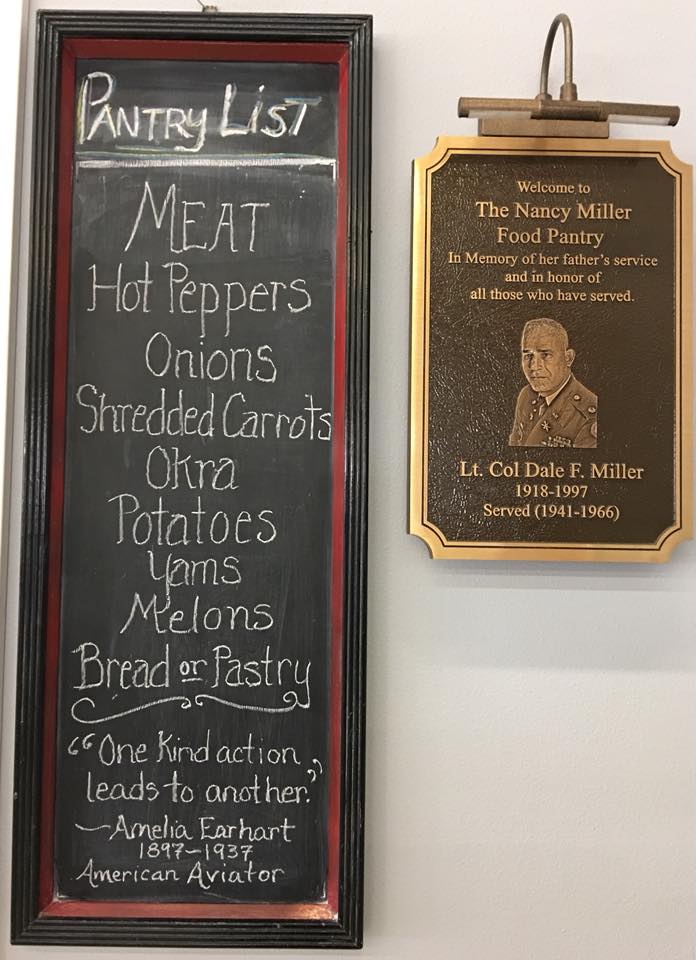 PANTRY LIST
MEAT
Hot Peppers
Onions
Shredded Carrots
Okra
Potatoes
Yams
Melons
Bread or Pastry
“One Kind action
leads to another.”
—Amelia Earhart
1897-1937
American Aviator
Welcome to
The Nancy Miller
Food Pantry
In Memory of her father's service
and in honor of
all those who have served.
Lt. Col Dale F. Miller
1918-1997
Served (1941-1966)